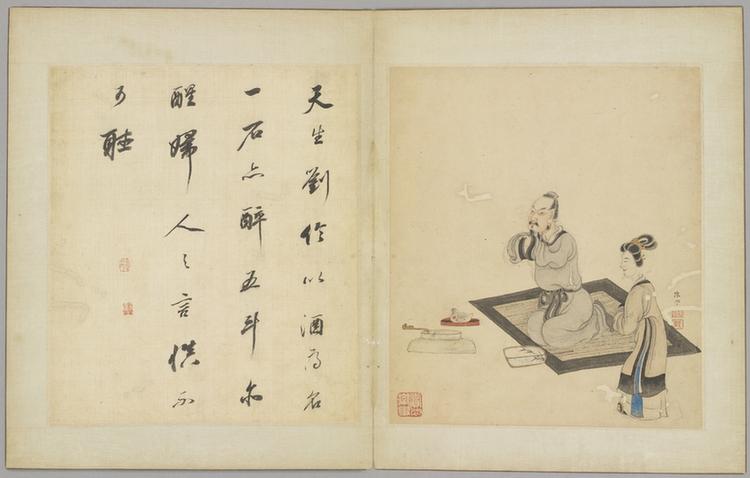 天生劉伶以酒為名
一石亦醉五斗亦
醒婦人之言慎不
可聽